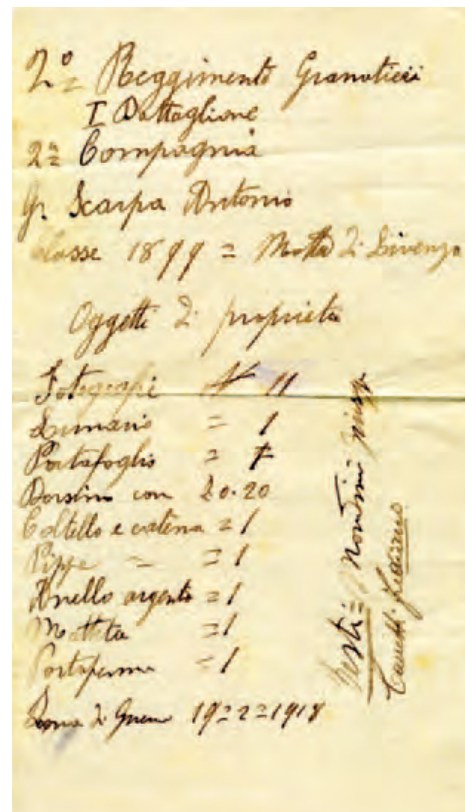 2º = Reggimento Granatieri
I Battaglione
2ª = Compagnia
Gr. Scarpa Antonio
Classe 1899 = Motta di Livenza
Oggetti di proprietà
Fotografie Nº 11
Lunario = 1
Portafoglio = 1
Borsino con £0.20
Coltello e catena = 1
Pippe = = 1
Anello argento = 1
Matita = 1
Portapenne = 1
Zona di Guerra 19=2=1918
Testi =